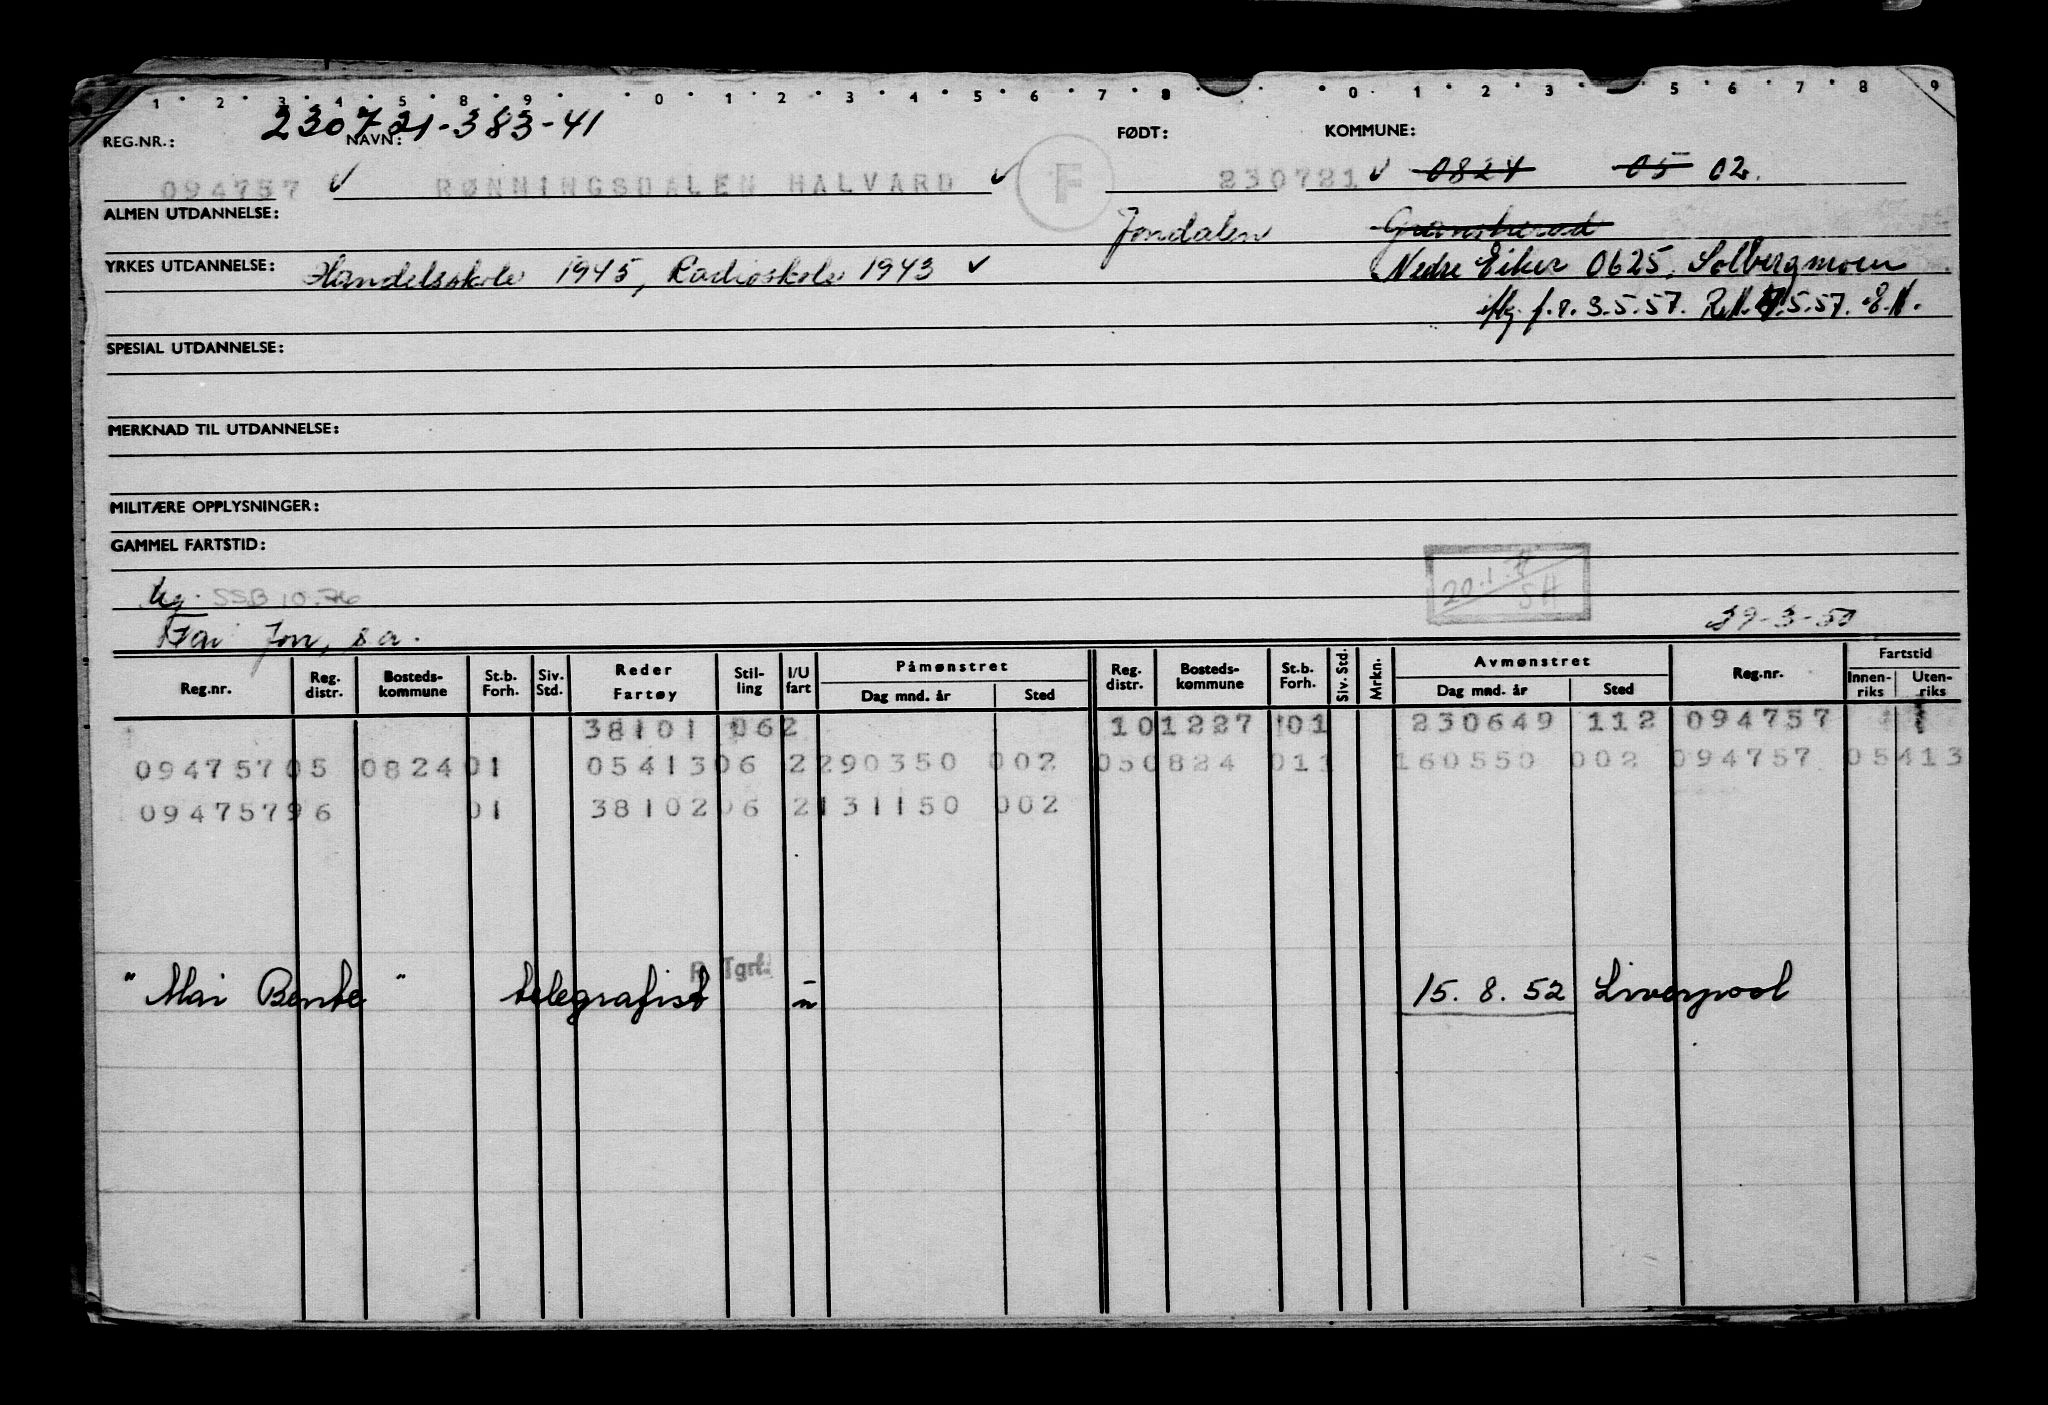 1 2 3 4 5 8 9 0 1 2 3 4 5 6 7 8 0 1 2 3 5 6 7 8 9
230721-383-41
REG.NR.: NAVN: FØDT: KOMMUNE:
094757 ✓ RØNNINGSDALEN HALVARD ✓ F 230721 ✓ 0824 05 02.
ALMEN UTDANNELSE: Jondalen Gransherad
YRKES UTDANNELSE: Handelsskole 1945, Radioskole 1943 ✓ Nedre Eiker 0625. Solbergmoen
f.r. 3.5.57. 5.57. E.N.
SPESIAL UTDANNELSE:
MERKNAD TIL UTDANNELSE:
MILITÆRE OPPLYSNINGER:
GAMMEL FARTSTID:
SSB 10.76 20.1. SH
Far Jon, s.a. 29-3-50
Reg.nr. Reg. distr. Bosteds-kommune St.b. Forh. Siv. Std. Reder Fartøy Stil-ling I/U fart Påmønstret Dag mnd. år Sted Reg. distr. Bosteds-kommune St.b. Forh. Siv. Std. Mrkn. Avmønstret Dag mnd. år Sted Reg.nr. Fartstid Innen-riks Uten-riks
38101 062 101227 01 230649 112 094757 1
09475705 082401 0541306 2290350 002 050824 011 160550 002 094757 05413
09475796 01 3810206 2131150 002
R.Tgrf.
"Mai Bente" telegrafist u 15. 8. 52 Liverpool